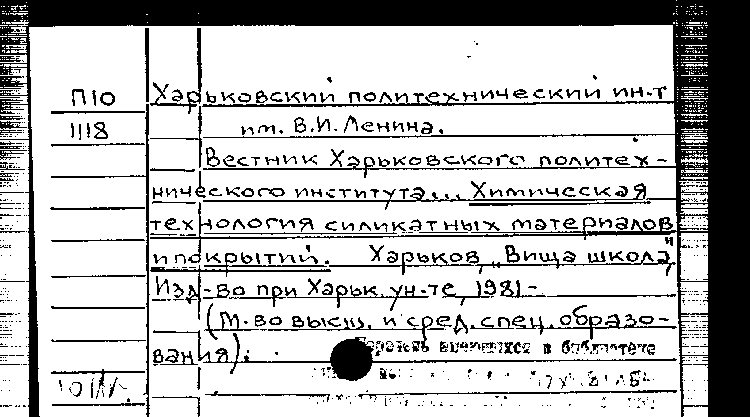 П10 Харьковский политехнический ин-т
1118 им. В.И. Ленина.
Вестник Харьковского политех-
нического института... Химическая
технология силикатных материалов
и покрытий. Харьков, „Вища школа",
Изд-во при Харьк. ун-те, 1981-
(М-во высш. и сред. спец. образо-
вания).
Перечень имеющихся в библиотеке